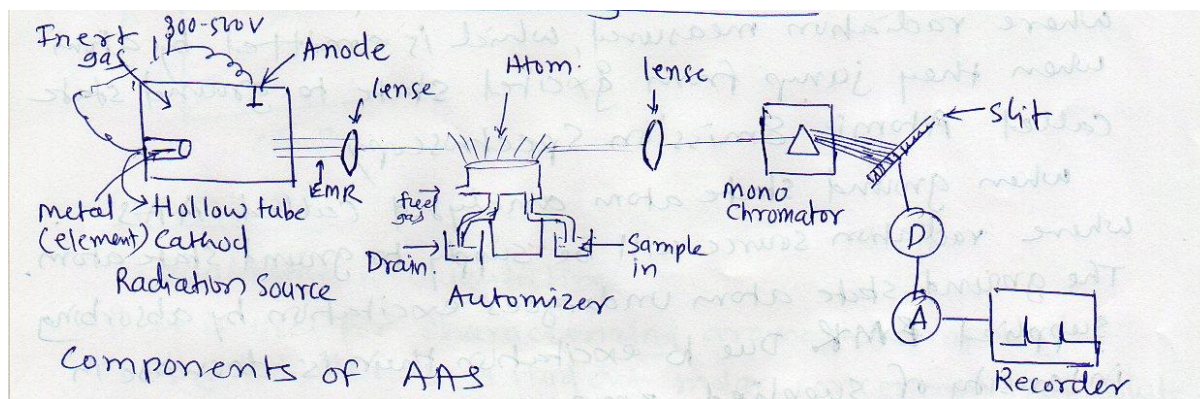 Inert gas
300-500V
Anode
lense
EMR
metal (element)
Hollow tube
Cathod
Radiation Source
Atom.
fuel gas
Drain.
Sample in
Automizer
lense
Mono Chromator
Slit
D
A
Recorder
Components of AAS